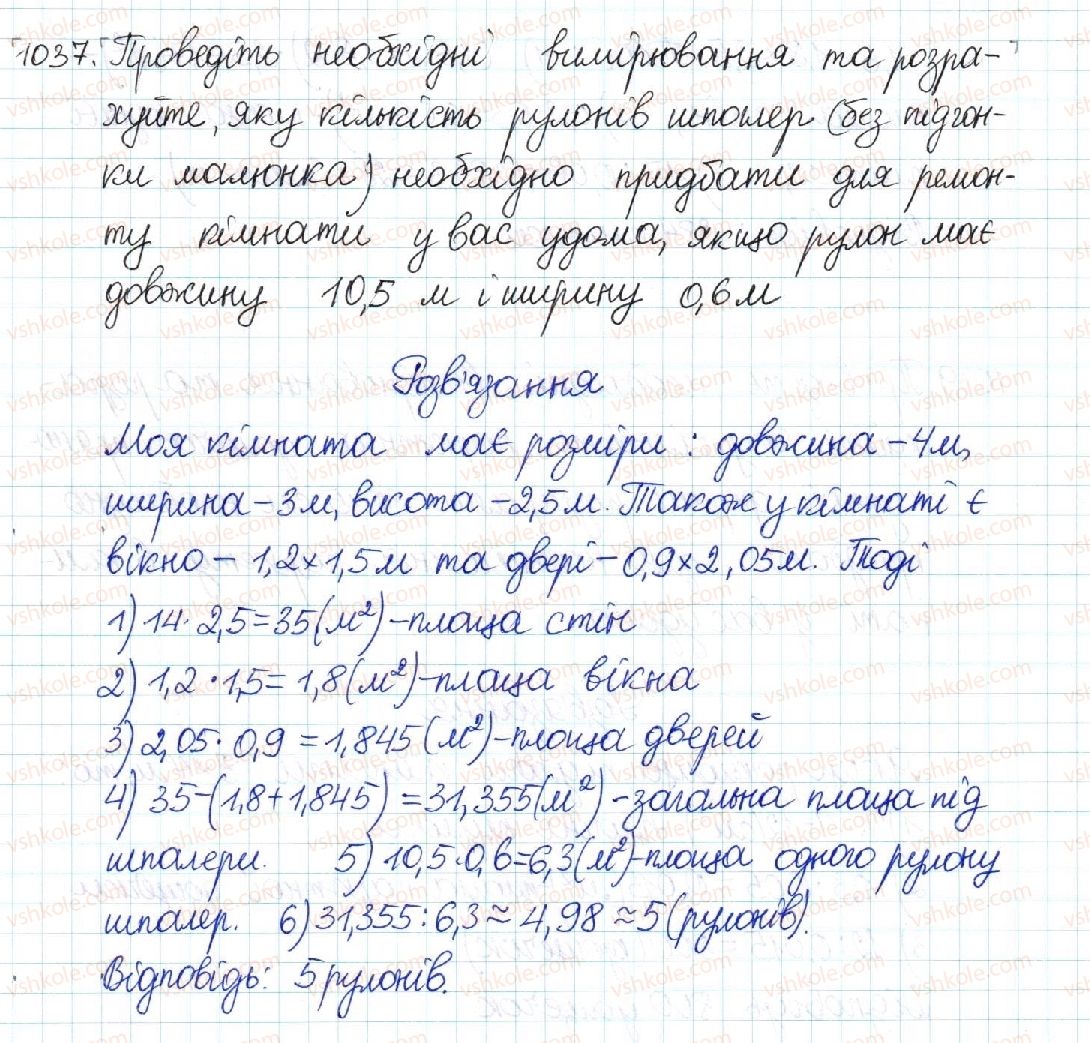 1037. Проведіть необхідні вимірювання та розра-
хуйте, яку кількість рулонів шпалер (без підгон-
ки малюнка) необхідно придбати для ремон-
ту кімнати у вас удома, якщо рулон має
довжину 10,5 м і ширину 0,6 м
Розв'язання
Моя кімната має розміри: довжина – 4 м,
ширина – 3 м, висота – 2,5 м. Також у кімнаті є
вікно – 1,2 × 1,5 м та двері – 0,9 × 2,05 м. Тоді
1) 14 · 2,5 = 35 (м²) – площа стін
2) 1,2 · 1,5 = 1,8 (м²) – площа вікна
3) 2,05 · 0,9 = 1,845 (м²) – площа дверей
4) 35 – (1,8 + 1,845) = 31,355 (м²) – загальна площа під
шпалери. 5) 10,5 · 0,6 = 6,3 (м²) – площа одного рулону
шпалер. 6) 31,355 : 6,3 ≈ 4,98 ≈ 5 (рулонів).
Відповідь: 5 рулонів.
vshkole.com